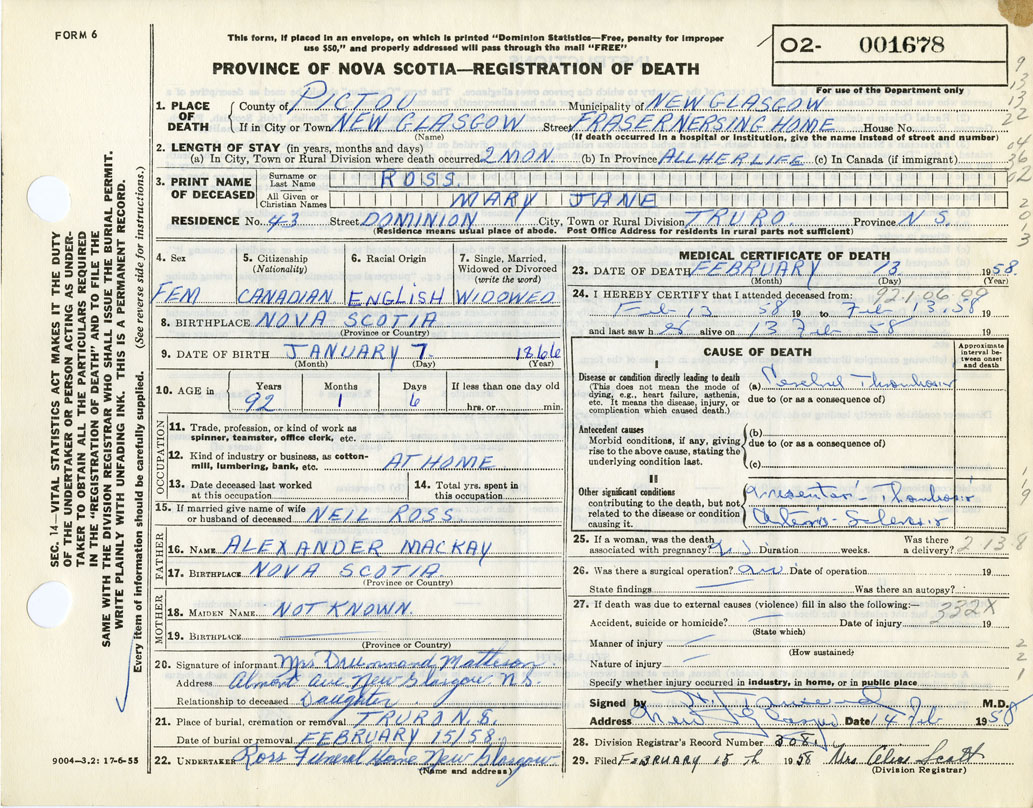 FORM 6
This form, if placed in an envelope, on which is printed "Dominion Statistics—Free, penalty for improper
use $50," and properly addressed will pass through the mail "FREE"
PROVINCE OF NOVA SCOTIA—REGISTRATION OF DEATH
02- 001678
For use of the Department only
1. PLACE OF DEATH
County of PICTOU Municipality of NEW GLASGOW
If in City or Town NEW GLASGOW Street FRASER NERSING HOME House No.
(Name) (If death occurred in a hospital or institution, give the name instead of street and number)
2. LENGTH OF STAY (in years, months and days)
(a) In City, Town or Rural Division where death occurred 2 MON. (b) In Province ALL HER LIFE (c) In Canada (if immigrant)
3. PRINT NAME OF DECEASED
Surname or Last Name ROSS
All Given or Christian Names MARY JANE
RESIDENCE No. 43 Street DOMINION City, Town or Rural Division TRURO Province N S.
(Residence means usual place of abode. Post Office Address for residents in rural parts not sufficient)
4. Sex
FEM
5. Citizenship
(Nationality)
CANADIAN
6. Racial Origin
ENGLISH
7. Single, Married,
Widowed or Divorced
(write the word)
WIDOWED
8. BIRTHPLACE NOVA SCOTIA
(Province or Country)
9. DATE OF BIRTH JANUARY 7 1866
(Month) (Day) (Year)
10. AGE in
Years Months Days If less than one day old
92 1 6 hrs. or min.
OCCUPATION
11. Trade, profession, or kind of work as
spinner, teamster, office clerk, etc.
12. Kind of industry or business, as cotton-
mill, lumbering, bank, etc. AT HOME
13. Date deceased last worked
at this occupation
14. Total yrs. spent in
this occupation
15. If married give name of wife
or husband of deceased NEIL ROSS
FATHER
16. NAME ALEXANDER MACKAY
17. BIRTHPLACE NOVA SCOTIA
(Province or Country)
MOTHER
18. MAIDEN NAME NOT KNOWN.
19. BIRTHPLACE
(Province or Country)
20. Signature of informant Mrs Drummond Matteson
Address Almont ave New Glasgow N.S.
Relationship to deceased Daughter
21. Place of burial, cremation or removal TRURO N.S.
Date of burial or removal FEBRUARY 15/58
22. UNDERTAKER Ross Funeral Home New Glasgow
(Name and address)
MEDICAL CERTIFICATE OF DEATH
23. DATE OF DEATH FEBRUARY 13 1958
(Month) (Day) (Year)
24. I HEREBY CERTIFY that I attended deceased from:
Feb 13 58 19 to Feb 13.58 19
and last saw h er alive on 13 Feb 58 19
CAUSE OF DEATH
Approximate
interval be-
tween onset
and death
I
Disease or condition directly leading to death
(This does not mean the mode of
dying, e.g., heart failure, asthenia,
etc. It means the disease, injury, or
complication which caused death.)
(a) Cerebral Thrombosis
due to (or as a consequence of)
Antecedent causes
Morbid conditions, if any, giving
rise to the above cause, stating the
underlying condition last.
(b)
due to (or as a consequence of)
(c)
II
Other significant conditions
contributing to the death, but not
related to the disease or condition
causing it.
Thrombosis
25. If a woman, was the death
associated with pregnancy? Duration weeks.
Was there
a delivery?
2 13 8
26. Was there a surgical operation? Date of operation 19
State findings Was there an autopsy?
27. If death was due to external causes (violence) fill in also the following:— 332X
Accident, suicide or homicide? Date of injury 19
(State which)
Manner of injury
(How sustained?)
Nature of injury
Specify whether injury occurred in industry, in home, or in public place
Signed by M.D.
Address New Glasgow Date 14 Feb 1958
28. Division Registrar's Record Number 308
29. Filed FEBRUARY 15 TH 1958 Mrs Scott
(Division Registrar)
9004—3.2: 17-6-55
SEC. 14—VITAL STATISTICS ACT MAKES IT THE DUTY
OF THE UNDERTAKER OR PERSON ACTING AS UNDER-
TAKER TO OBTAIN ALL THE PARTICULARS REQUIRED
IN THE "REGISTRATION OF DEATH" AND TO FILE THE
SAME WITH THE DIVISION REGISTRAR WHO SHALL ISSUE THE BURIAL PERMIT.
WRITE PLAINLY WITH UNFADING INK. THIS IS A PERMANENT RECORD.
Every item of information should be carefully supplied. (See reverse side for instructions.)